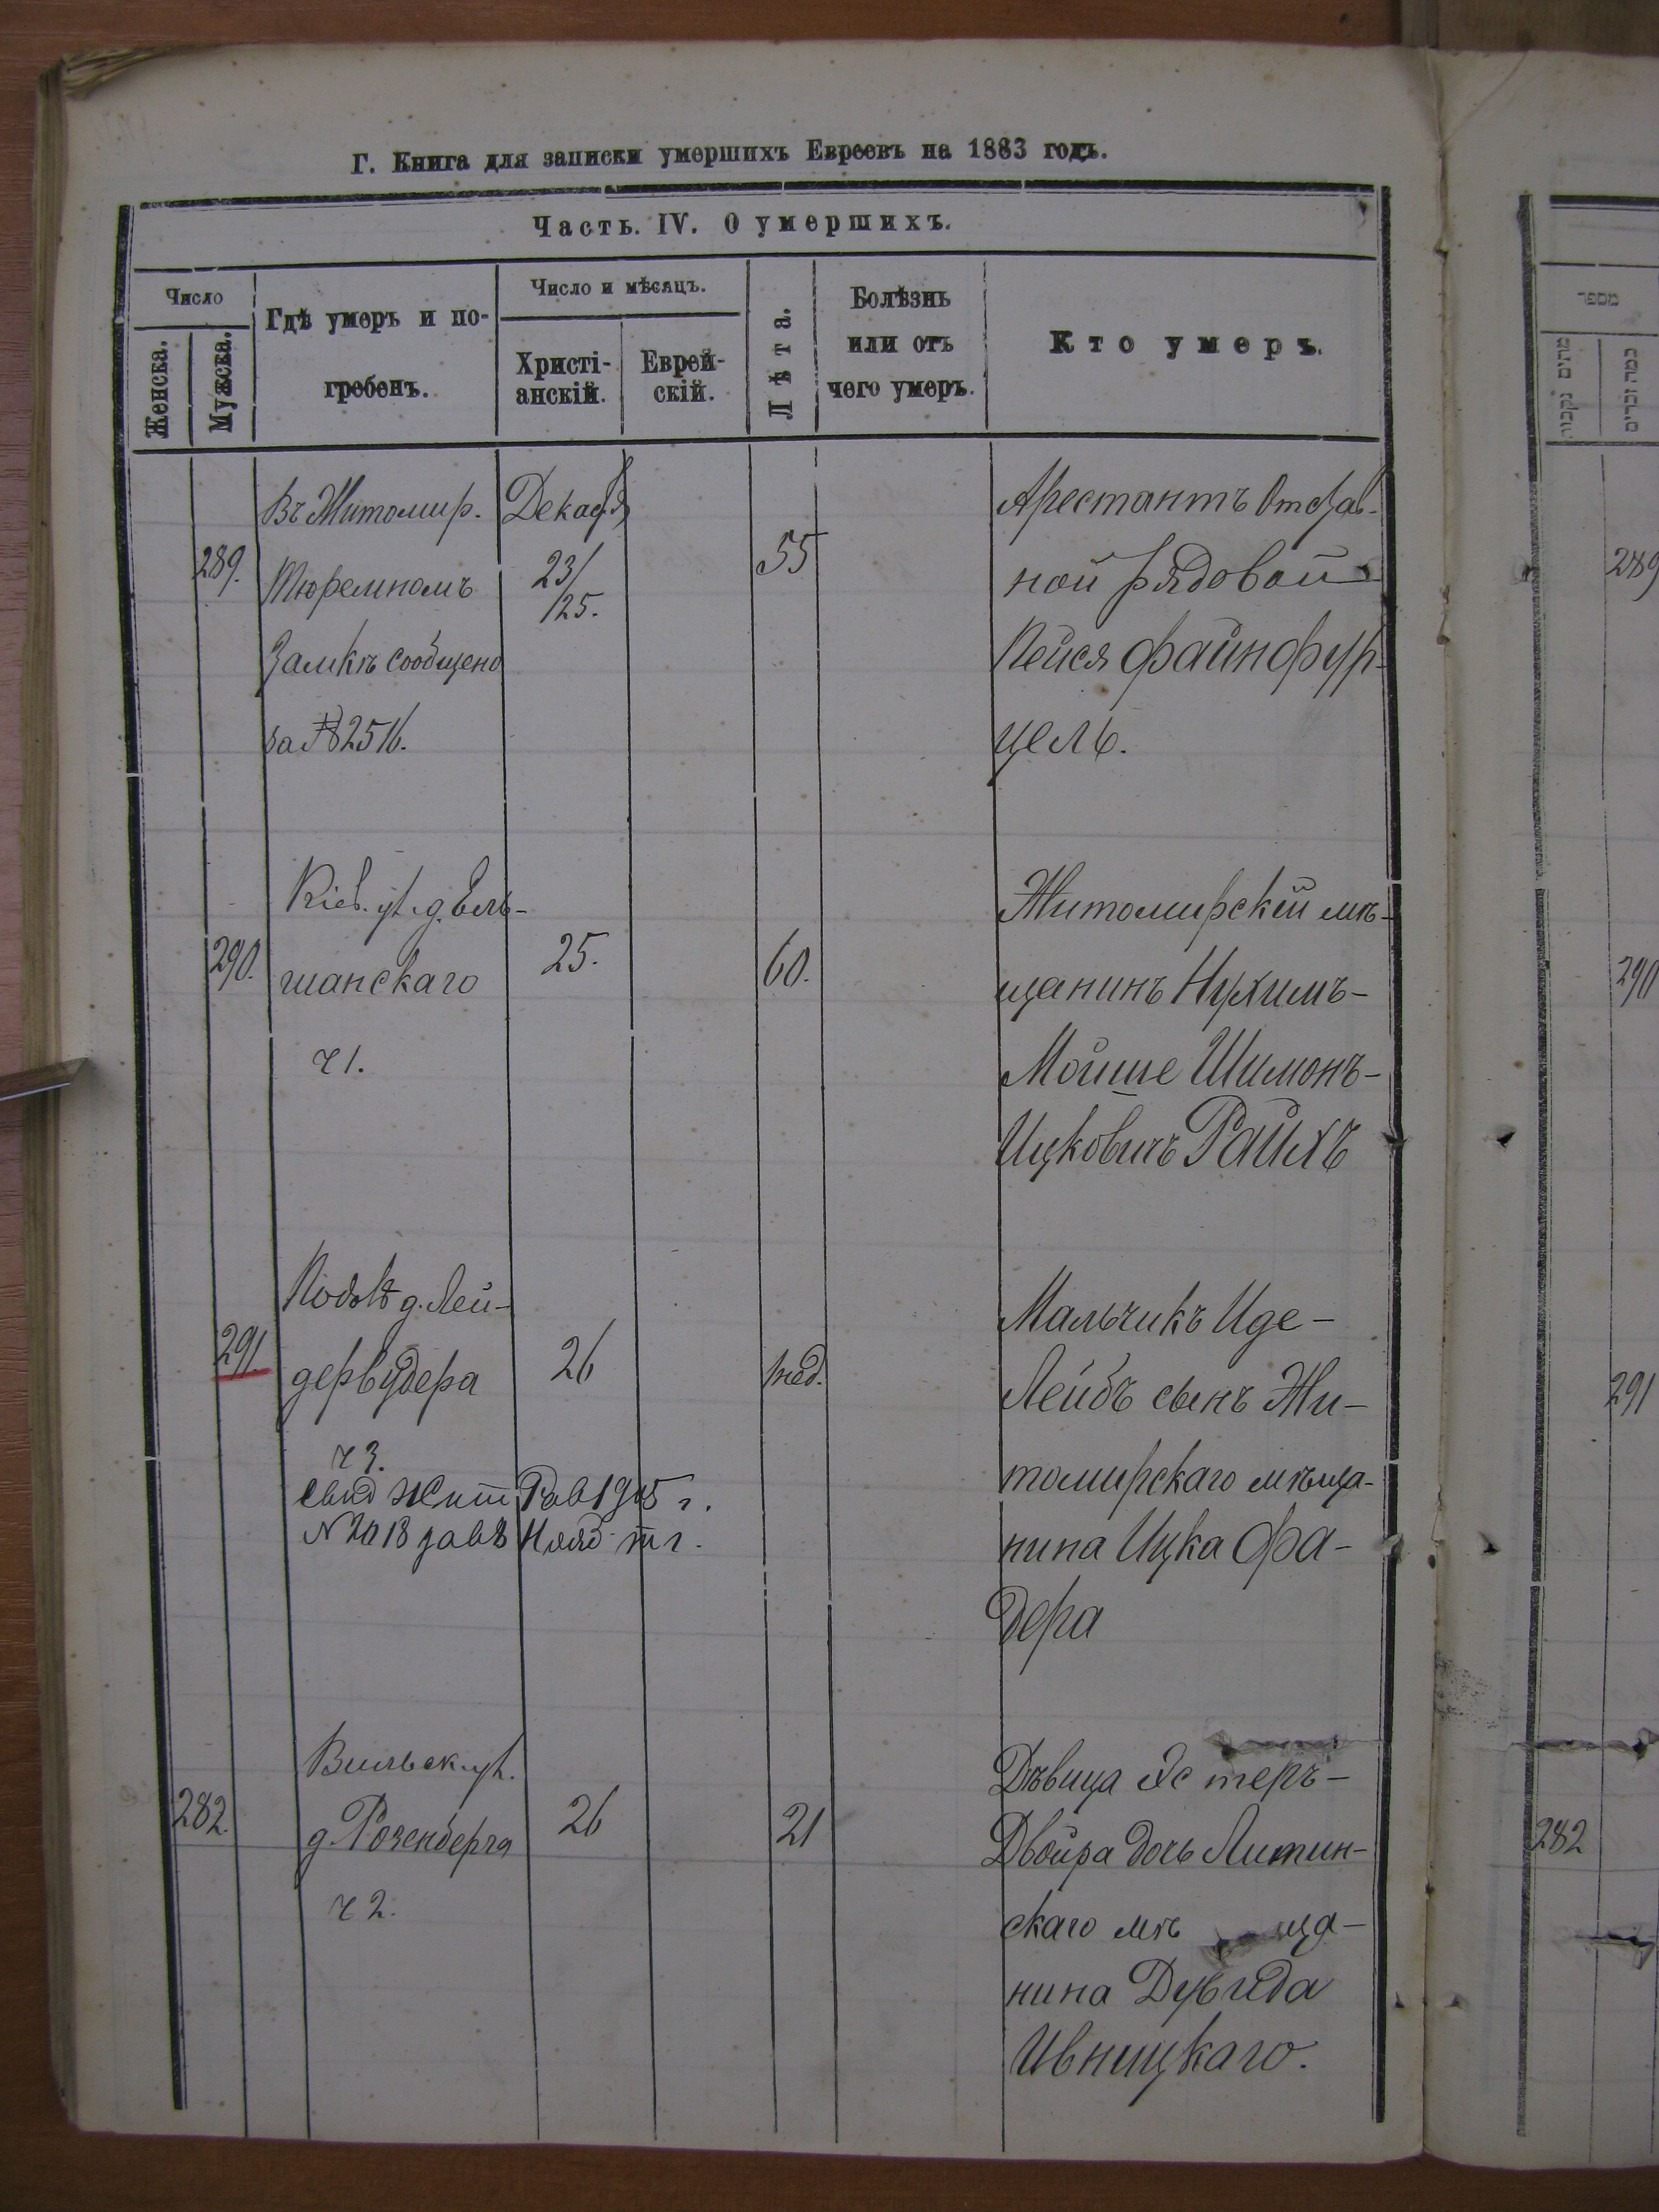 Г. Книга для записки умершихъ Евреевъ на 1883 годъ.
Часть. IV. О умершихъ.
Число
Женска.
Мужска.
Гдѣ умеръ и по-
гребенъ.
Число и мѣсяцъ.
Христі-
анскій.
Еврей-
скій.
Лѣта.
Болѣзнь
или отъ
чего умеръ.
Кто умеръ.
289.
Въ Житомир.
Тюремномъ
Замкѣ сообщено
за № 2516.
Декабря
23/
/25.
55
Арестантъ Отстав-
ной рядовой
Пейся Файнфур-
цель.
290.
Кіев. ул. д. Ель-
шанскаго
ч 1.
25.
60.
Житомирскій мѣ-
щанинъ Нухимъ-
Мойше Шимонъ-
Ицковичъ Райхъ
291.
д. Лей-
ч 3.
26
нед.
Мальчикъ Иде-
Лейбъ сынъ Жи-
томирскаго мѣща-
нина Ицка Фа-
дера
Свид Жит Рав 1905 г.
282.
Вильск. ул.
д. Розенберга
ч 2.
26
21
Дѣвица Эстеръ-
Двойра дочь Литин-
скаго мѣ ща-
нина Дувида
Ивницкаго.
מספר
מתים נקבות
כמה זכרים
289
290
291
282